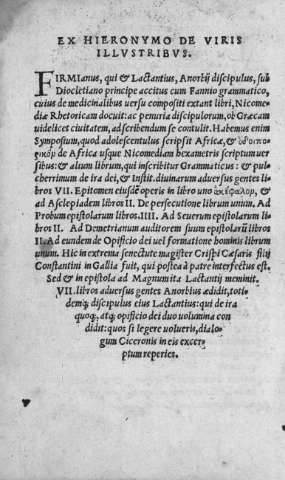 EX HIERONYMO DE VIRIS
ILLVSTRIBVS.
FIRMIanus, qui & Lactantius, Anorbij discipulus, sub
Diocletiano principe accitus cum Fannio grammatico,
cuius de medicinalibus uersu compositi extant libri, Nicome
diæ Rhetoricam docuit: ac penuria discipulorum, ob Græcam
uidelicet ciuitatem, ad scribendum se contulit. Habemus enim
Symposium, quod adolescentulus scripsit Africæ, & ὁδοιπο
ρικὸν de Africa usque Nicomediam hexametris scriptum uer
sibus: & alium librum, qui inscribitur Grammaticus: & pul
cherrimum de ira dei, & Instit. diuinarum aduersus gentes li
bros VII. Epitomen eiusdẽ operis in libro uno ἀκέφαλον, &
ad Asclepiadem libros II. De persecutione librum unum. Ad
Probum epistolarum libros IIII. Ad Seuerum epistolarum li
bros II. Ad Demetrianum auditorem suum epistolarũ libros
II. Ad eundem de Opificio dei uel formatione hominis librum
unum. Hic in extrema senectute magister Crispi Cæsaris filij
Constantini in Gallia fuit, qui postea à patre interfectus est.
Sed & in epistola ad Magnum ita Lactantij meminit.
VII. libros aduersus gentes Anorbius ædidit, toti-
demq; discipulus eius Lactantius: qui de ira
quoq;, atq; opificio dei duo uolumina con
didit: quos si legere uolueris, dialo-
gum Ciceronis in eis excer-
ptum reperies.